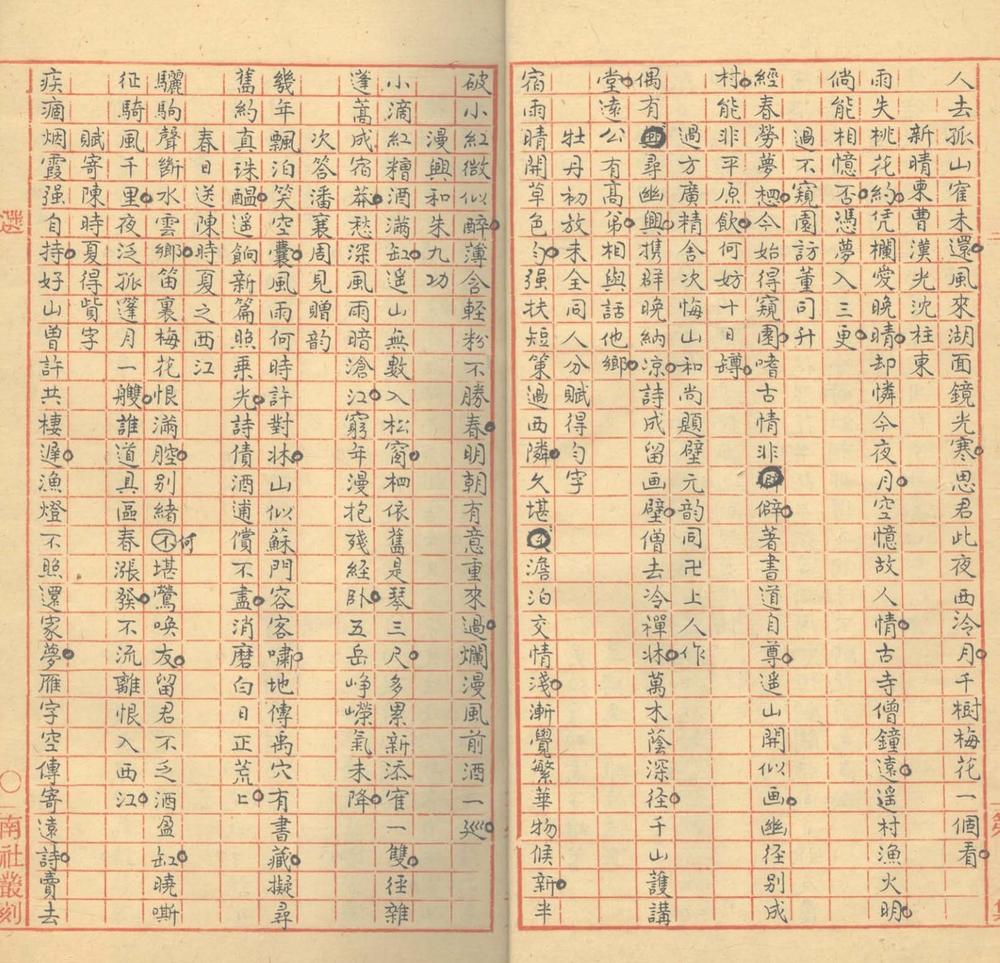 人去孤山寉未還風來湖面鏡光寒思君此夜西泠月千樹梅花一個看
新晴柬曹漢光沈柱東
雨失桃花約凭欄愛晚晴却憐今夜月空憶故人情古寺僧鐘遠遥村漁火明
倘能相憶否憑夢入三更
過不窺園訪董司升
經春勞夢今始得窺園嗜古情非僻著書道自尊遥山開似画幽径别成
村能非平原飲何妨十日罇
過方廣精舍次悔山和尚題壁元韵同卍上人作
偶有尋幽興携群晚納凉詩成留画壁僧去冷禪牀萬木蔭深径千山護講
堂遠公有高弟相與話他鄉
牡丹初放未全同人分賦得勻字
宿雨晴開草色勻强扶短策過西隣久堪澹泊交情淺漸覺繁華物候新半
破小紅微似醉薄含輕粉不勝春明朝有意重來過爛漫風前酒一巡
漫興和朱九功
小滴紅糟酒滿缸遥山無數入松窗依舊是琴三尺多累新添寉一雙徑雜
蓬蒿成宿莽愁深風雨暗滄江窮年漫抱殘經卧五岳峥嶸氣未降
次答潘襄周見贈韵
幾年飄泊笑空囊風雨何時許對牀山似蘇門容客嘯地傳禹穴有書藏擬尋
舊約真珠醖遥餉新篇照乘光詩債酒逋償不盡消磨白日正荒
春日送陳時夏之西江
驪駒聲斷水雲鄉笛裏梅花恨滿腔别緒何堪鶯唤友留君不乏酒盈缸曉嘶
征騎風千里夜泛孤篷月一艭誰道具區春漲發不流離恨入西江
賦寄陳時夏得貲字
疾痼烟霞强自持好山曾許共棲遲漁燈不照還家夢雁字空傳寄遠詩賣去
選
南社叢刻